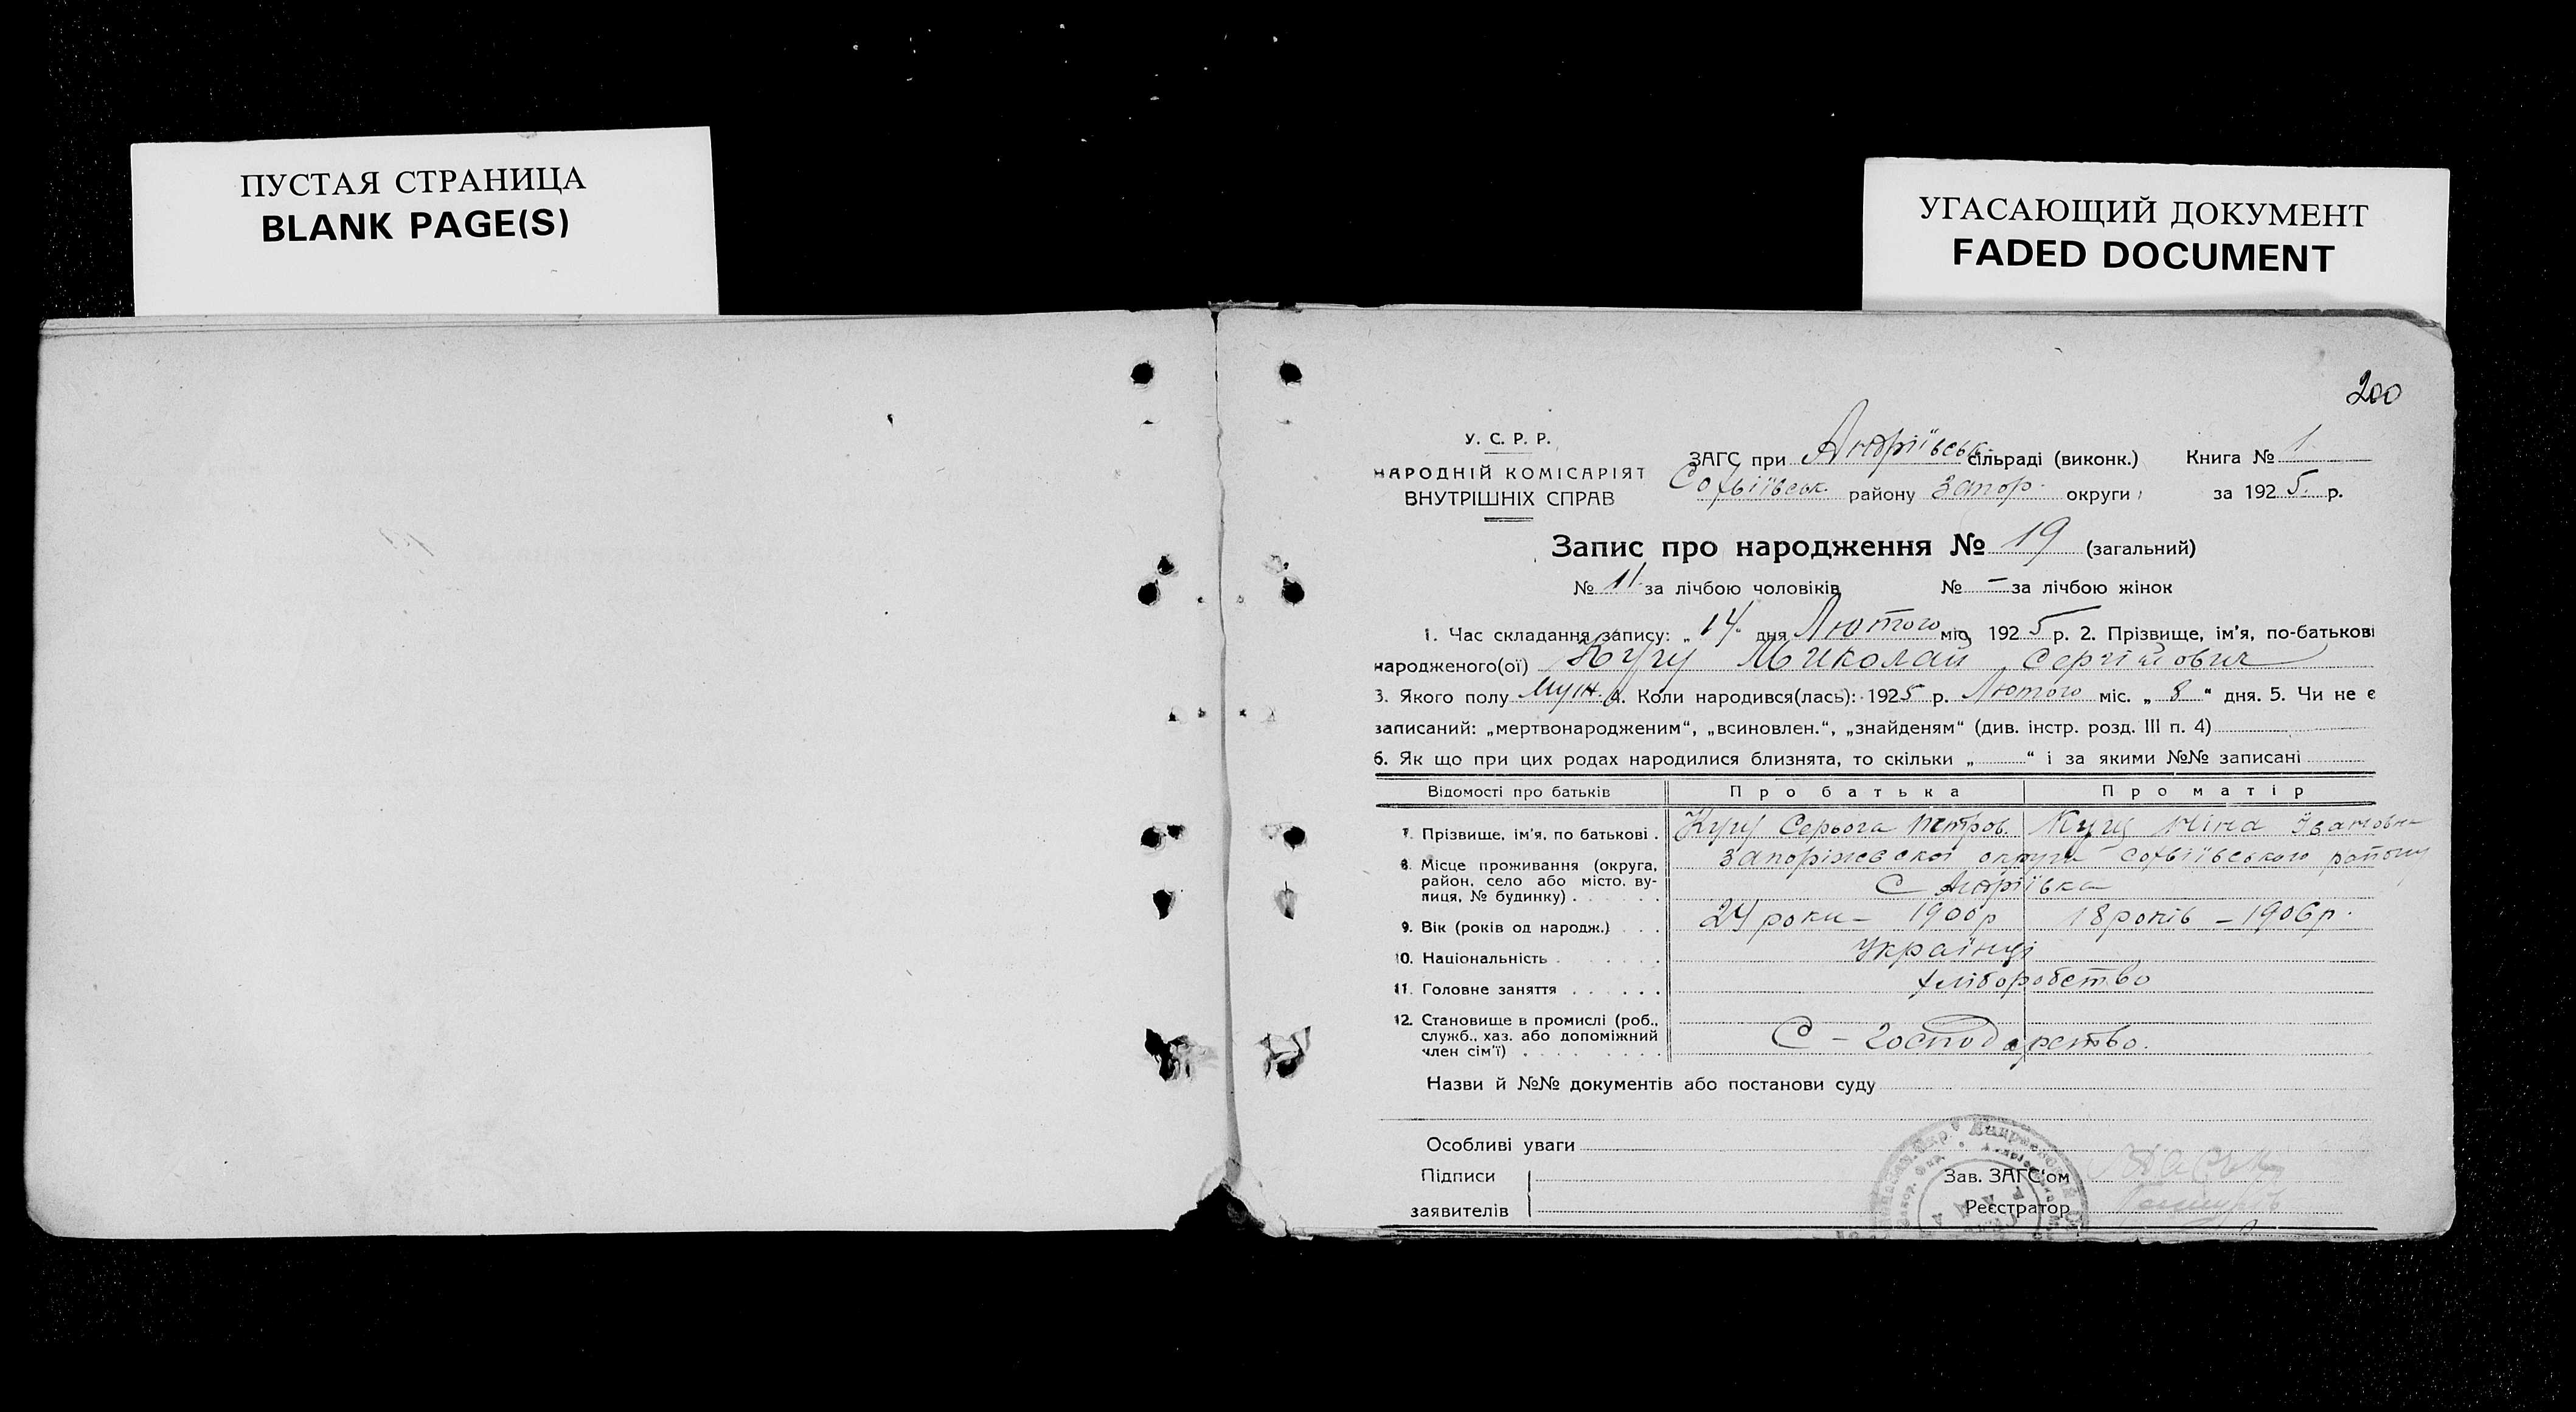 ПУСТАЯ СТРАНИЦА
BLANK PAGE(S)
УГАСАЮЩИЙ ДОКУМЕНТ
FADED DOCUMENT
200
У. С. Р. Р.
НАРОДНІЙ КОМІСАРІЯТ
ВНУТРІШНІХ СПРАВ
ЗАГС при Андріївськ. сільраді (виконк.) Книга № 1
Софіївськ. району Запор. округи за 1925 р.
Запис про народження № 19 (загальний)
№ 11 за лічбою чоловіків № – за лічбою жінок
1. Час складання запису: „ 14 дня Лютого міс. 1925 р. 2. Прізвище, ім'я, по-батькові
народженого(ої) Кущ Миколай Сергійович
3. Якого полу Муж. 4. Коли народився(лась): 1925 р. Лютого міс. „ 8 “ дня. 5. Чи не є
записаний: „мертвонародженим“, „всиновлен.“, „знайденям“ (див. інстр. розд. III п. 4)
6. Як що при цих родах народилися близнята, то скільки „ “ і за якими №№ записані
Відомості про батьків Про батька Про матір
7. Прізвище, ім'я, по батькові . Кущ Серьога Петров. Кущ Івановна
8. Місце проживання (округа, Запоріжської округи Софіївського району
район, село або місто, ву-
лиця, № будинку) . . . . . . С Андріївка
9. Вік (років од народж.) . . . 24 роки – 1900 р 18 років – 1906 р.
10. Національність . . . . . . Українці
11. Головне заняття . . . . . . хліборобство
12. Становище в промислі (роб.,
служб., хаз. або допоміжний С – Господарство.
член сім'ї) . . . . . . . . .
Назви й №№ документів або постанови суду
Особливі уваги
Підписи Зав. ЗАГС'ом
заявителів Реєстратор